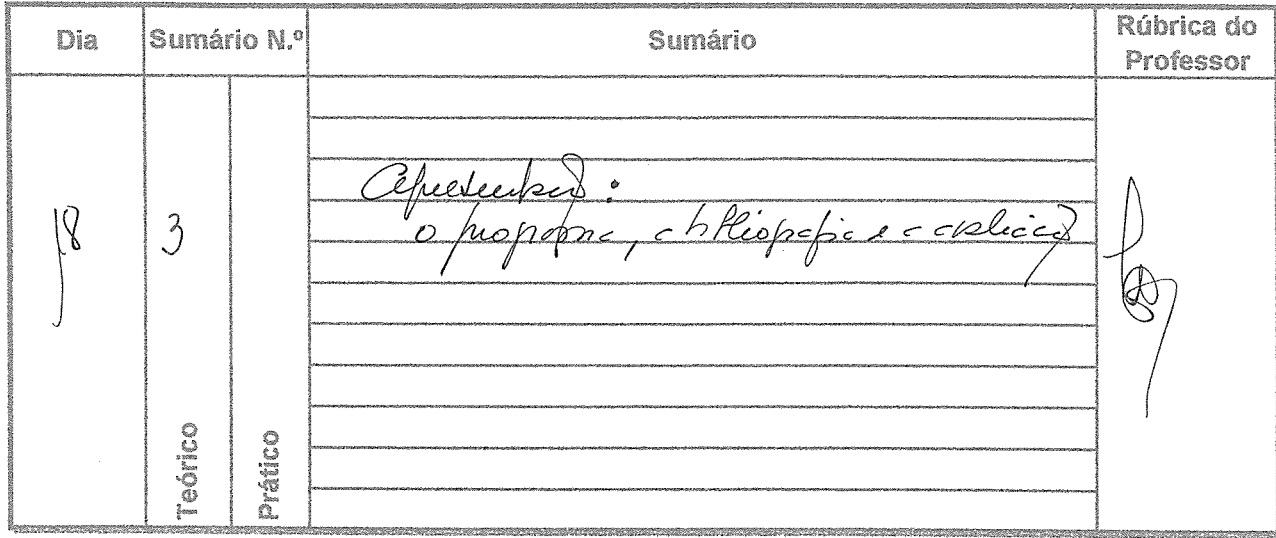 Dia Sumário N.º Sumário Rúbrica do
Professor
18 3
Apresentação:
o programa, a bibliografia e a avaliação
Teórico Prático